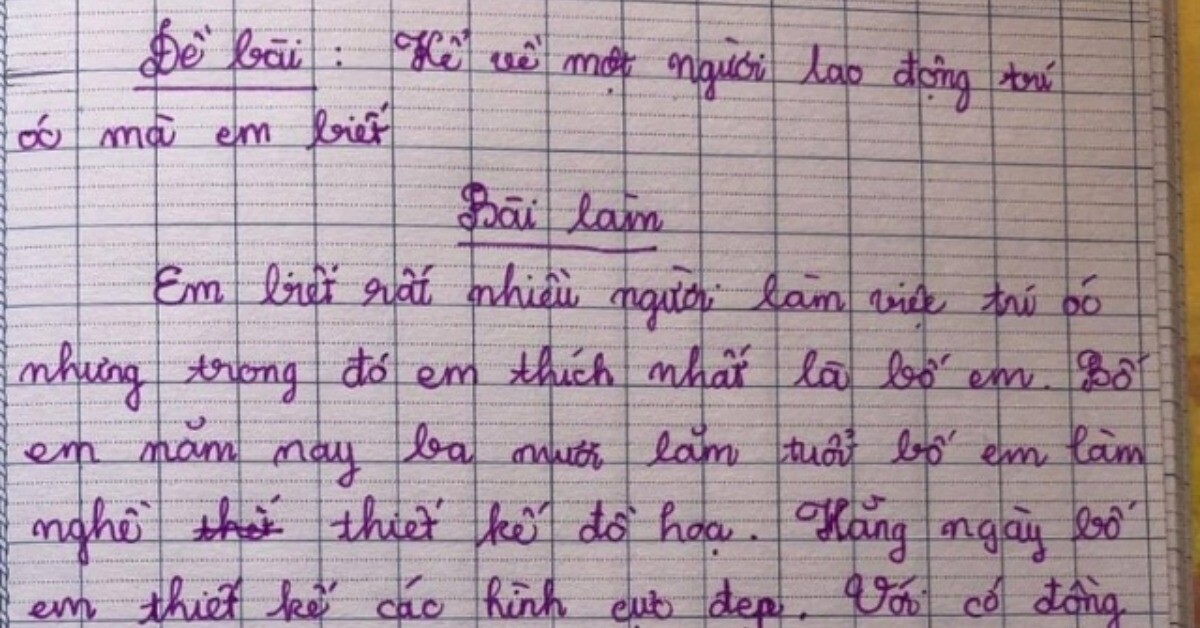 Đề bài : Kể về một người lao động trí
óc mà em biết
Bài làm
Em biết rất nhiều người làm việc trí óc
nhưng trong đó em thích nhất là bố em. Bố
em năm nay ba mươi lăm tuổi bố em làm
nghề thiết kế đồ hoạ. Hằng ngày bố
em thiết kế các hình cực đẹp. Với cô đồng